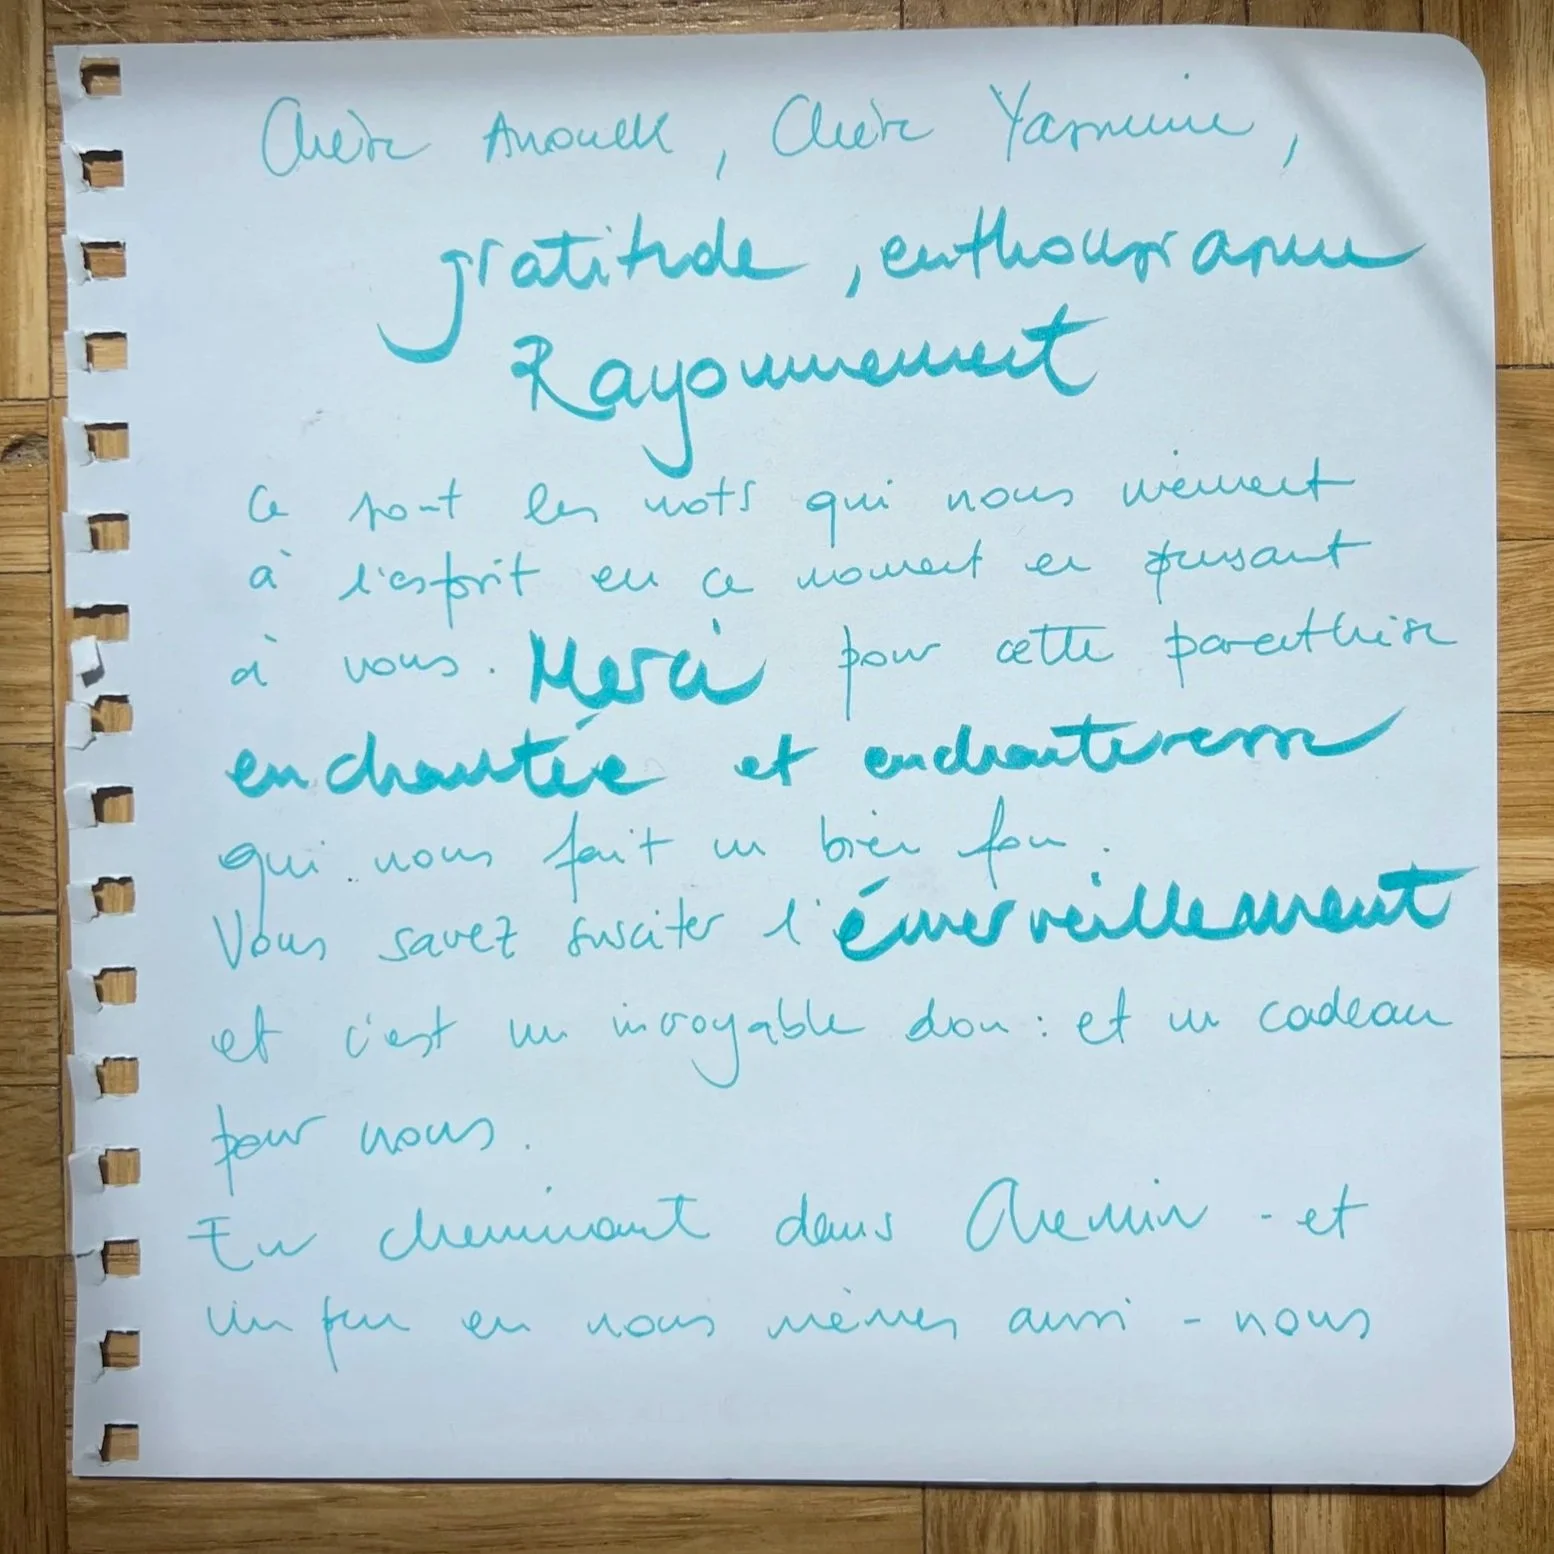 Chère Anouck, Chère Yasmine,
gratitude, enthousiasme
Rayonnement
Ce sont les mots qui nous viennent
à l'esprit en ce moment en pensant
à vous. Merci pour cette parenthèse
enchantée et enchanteresse
qui nous fait un bien fou.
Vous savez susciter l'émerveillement
et c'est un incroyable don : et un cadeau
pour nous.
En cheminant dans Chemin - et
un peu en nous mêmes aussi - nous